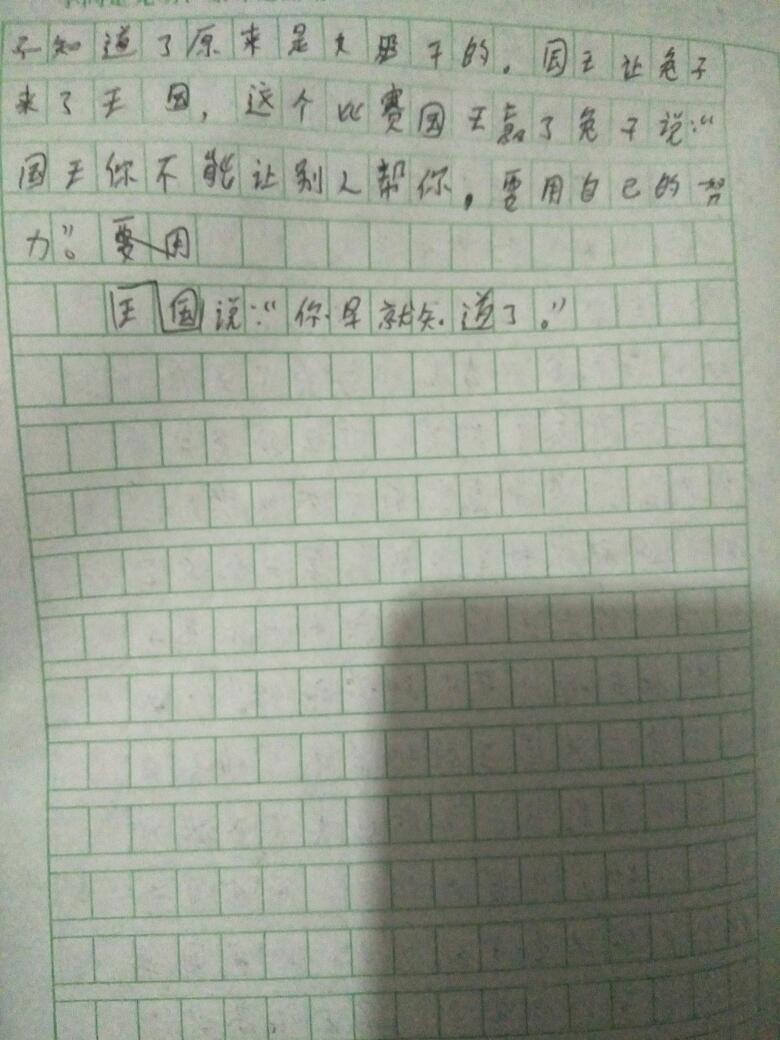 不知道了原来是大臣干的。国王让兔子
来了王国，这个比赛国王赢了兔子说：“
国王你不能让别人帮你，要用自己的努
力”。要用
王国说：“你早就知道了。”